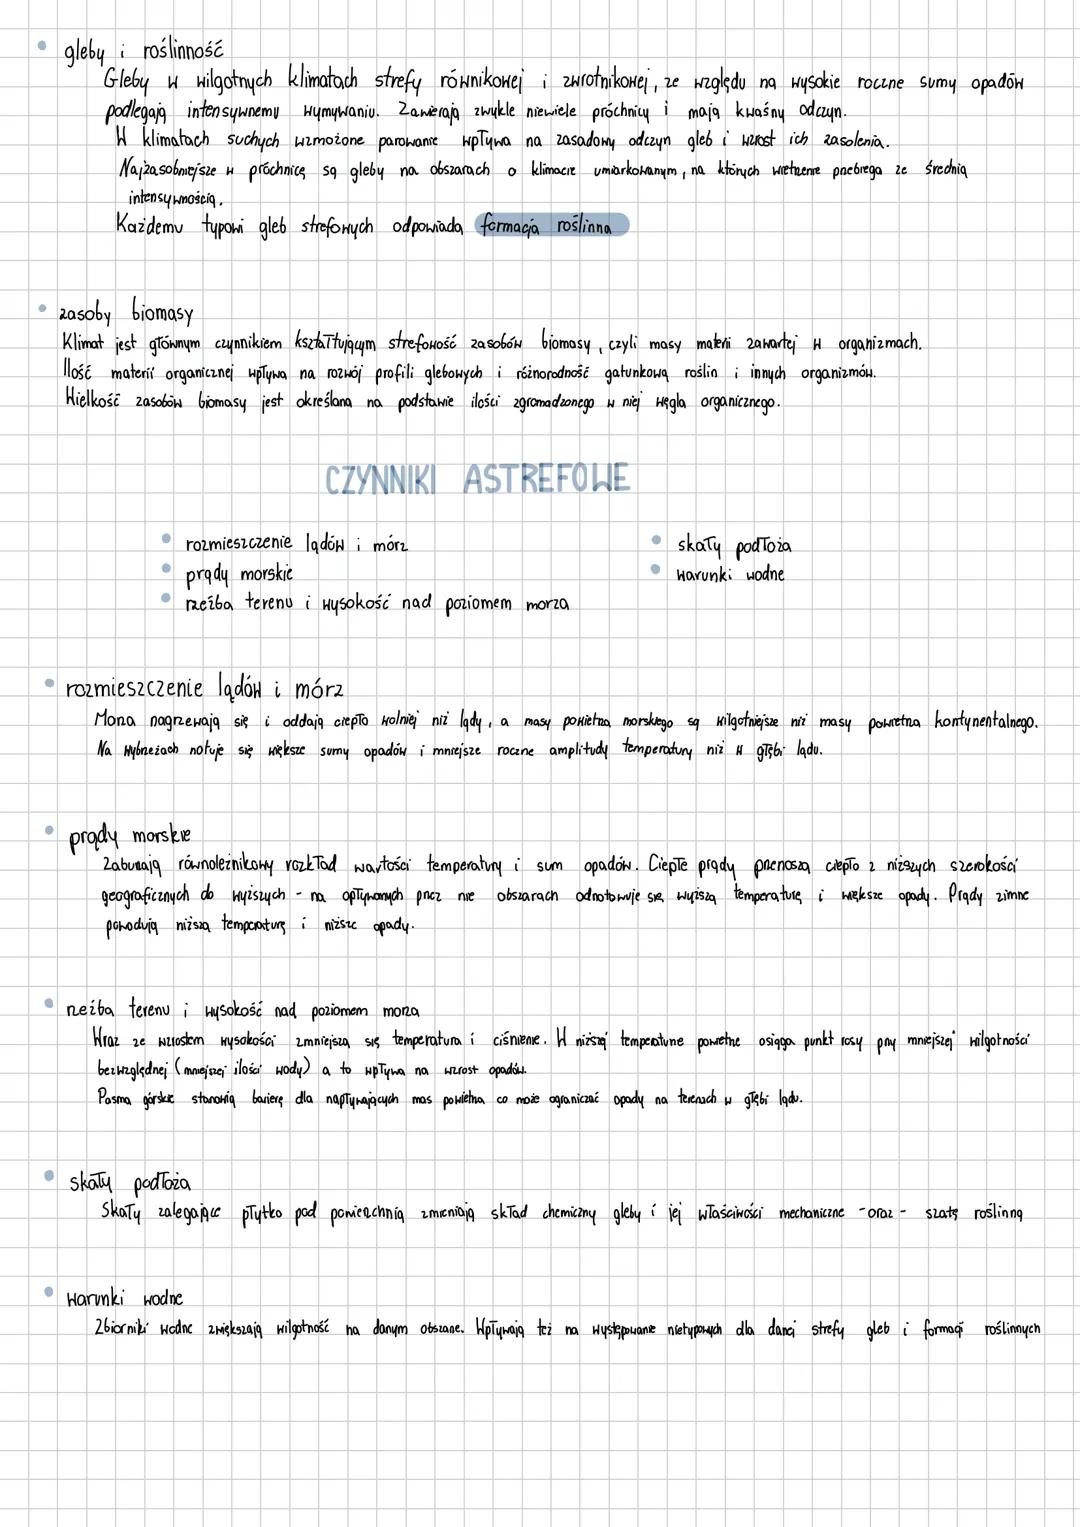 gleby i roślinność
Gleby w wilgotnych klimatach strefy równikowej i zwrotnikowej, ze względu na wysokie roczne sumy opadów
podlegają intensywnemu wymywaniu. Zawierają zwykle niewiele próchnicy i mają kwaśny odczyn.
W klimatach suchych wzmożone parowanie wpływa na zasadowy odczyn gleb i wzrost ich zasolenia.
Najzasobniejsze w próchnicę są gleby na obszarach o klimacie umiarkowanym, na których wietrzenie przebiega ze średnią
intensywnością.
Każdemu typowi gleb strefowych odpowiada formacja roślinna
zasoby biomasy
Klimat jest głównym czynnikiem kształtującym strefowość zasobów biomasy, czyli masy materii zawartej w organizmach.
Ilość materii organicznej wpływa na rozwój profili glebowych i różnorodność gatunkową roślin i innych organizmów.
Wielkość zasobów biomasy jest określana na podstawie ilości zgromadzonego w niej węgla organicznego.
CZYNNIKI ASTREFOWE
rozmieszczenie lądów i mórz
prądy morskie
rzeźba terenu i wysokość nad poziomem morza
skały podłoża
warunki wodne
rozmieszczenie lądów i mórz
Morza nagrzewają się i oddają ciepło wolniej niż lądy, a masy powietrza morskiego są wilgotniejsze niż masy powietrza kontynentalnego.
Na wybrzeżach notuje się większe sumy opadów i mniejsze roczne amplitudy temperatury niż w głębi lądu.
prądy morskie
Zaburzają równoleżnikowy rozkład wartości temperatury i sum opadów. Ciepłe prądy przenoszą ciepło z niższych szerokości
geograficznych do wyższych - na opływanych przez nie obszarach odnotowuje się wyższą temperaturę i większe opady. Prądy zimne
powodują niższą temperaturę i niższe opady.
rzeźba terenu i wysokość nad poziomem morza
Wraz ze wzrostem wysokości zmniejsza się temperatura i ciśnienie. W niższej temperaturze powietrze osiąga punkt rosy przy mniejszej wilgotności
bezwzględnej (mniejszej ilości wody) a to wpływa na wzrost opadów.
Pasma górskie stanowią barierę dla napływających mas powietrza co może ograniczać opady na terenach w głębi lądu.
skały podłoża
Skały zalegające płytko pod powierzchnią zmieniają skład chemiczny gleby i jej właściwości mechaniczne - oraz - szatę roślinną
warunki wodne
Zbiorniki wodne zwiększają wilgotność na danym obszarze. Wpływają też na występowanie nietypowych dla danej strefy gleb i formacji roślinnych